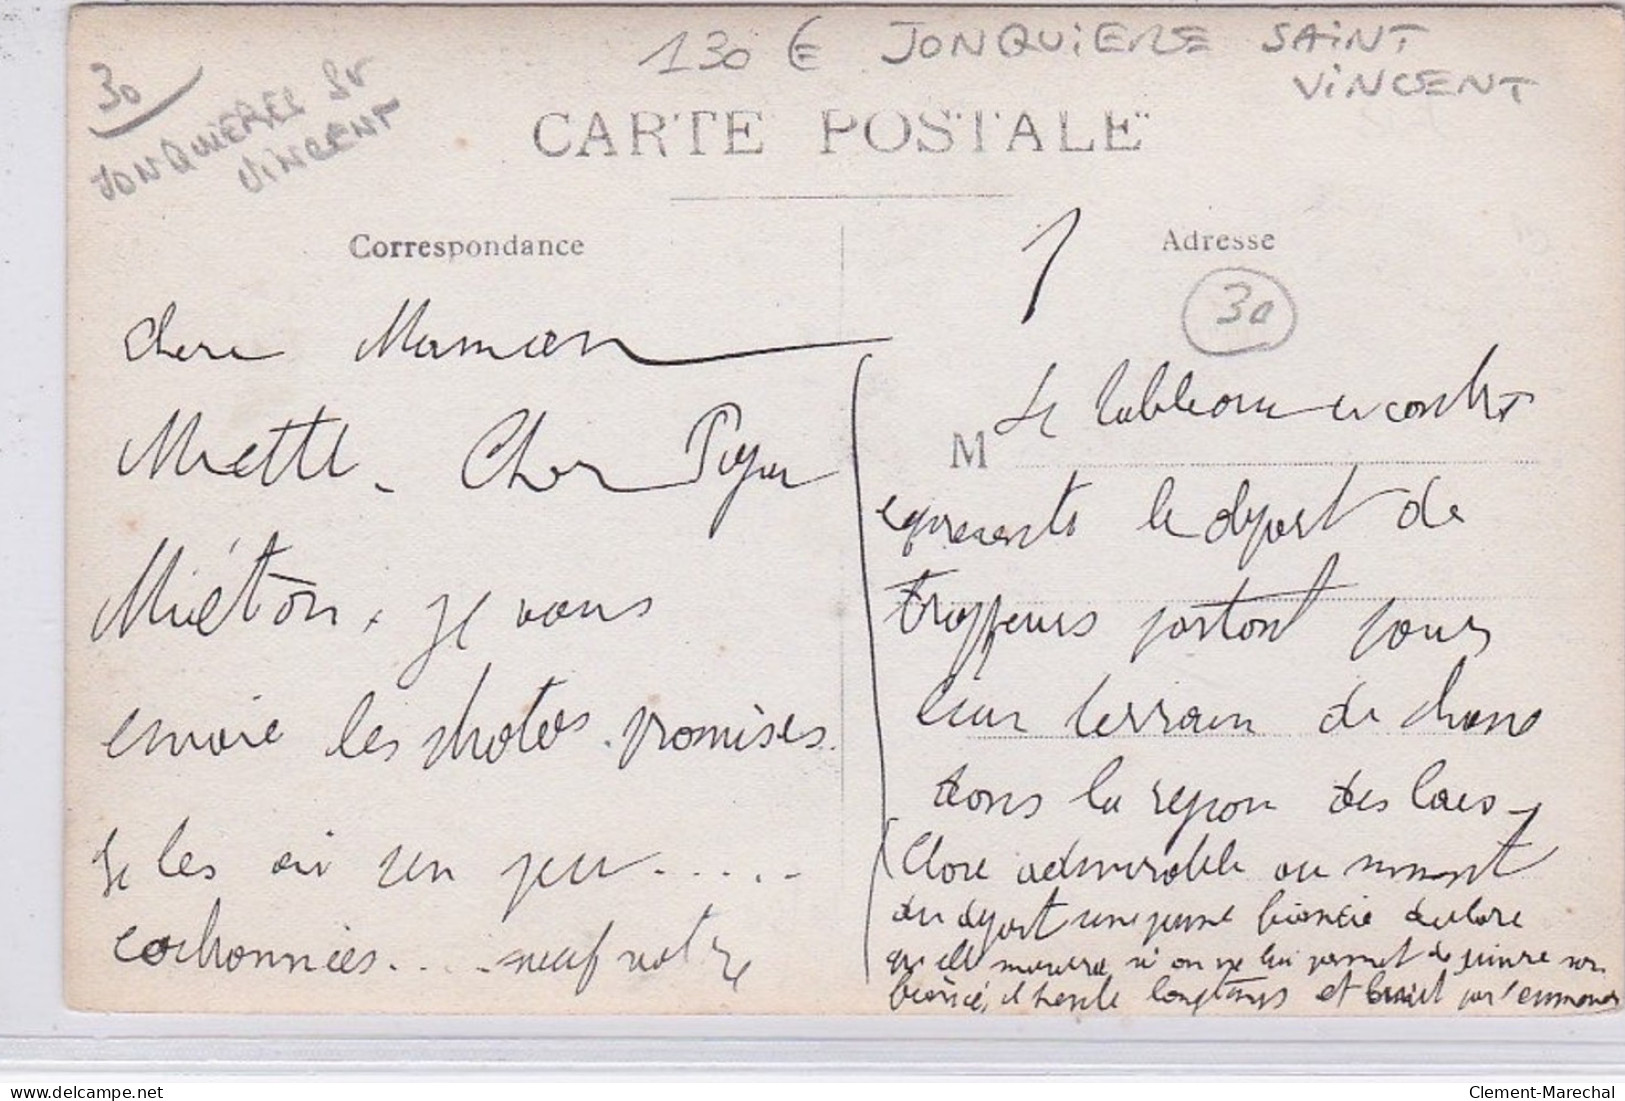 130 € JONQUIERE SAINT
VINCENT
30
JONQUIERES ST
VINCENT
CARTE POSTALE
Correspondance
Adresse
1
30
chere Maman
Miette. Cher Papa
Miéton, je vous
envoie les photos promises.
Je les ai un peu.....
cochonnées.... neuf votre
M
Le tableau ci contre
represente le depart de
trappeurs partant pour
leur terrain de chasse
dans la region des lacs
(Clore admirable au moment
du depart une jeune fiancée declare
qu elle mourra si on ne lui permet de suivre son
fiancé, il hesite longtemps et finit par l'emmener
Clement-Marechal